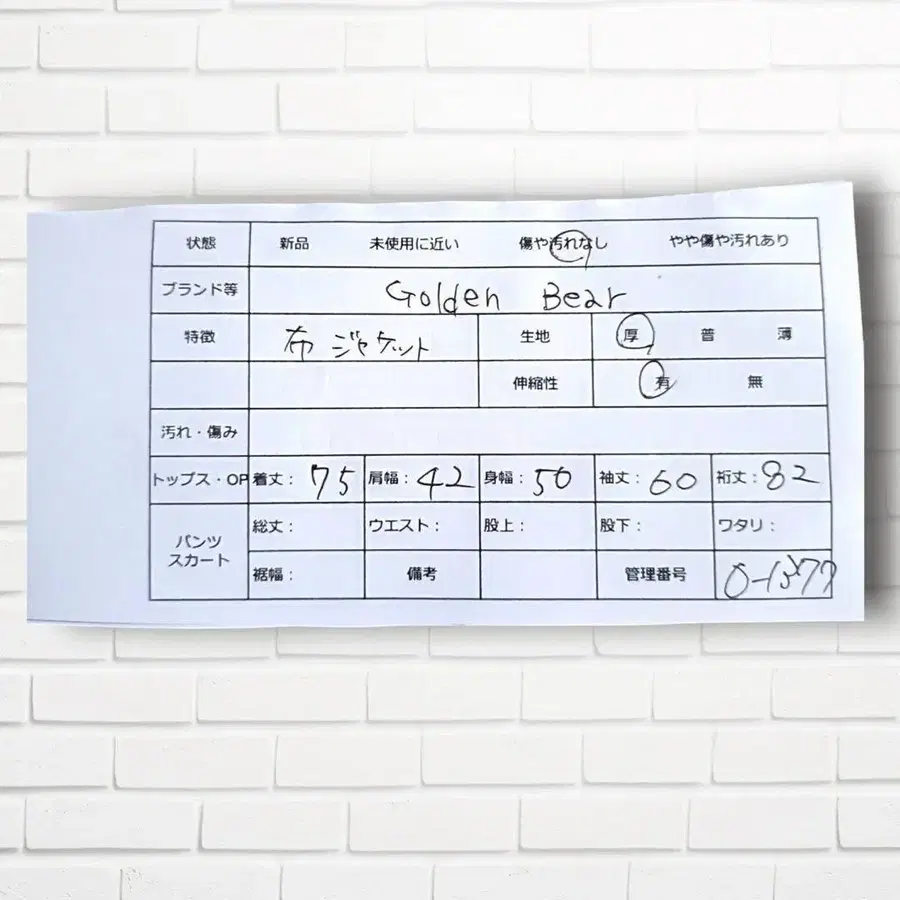 状態 新品 未使用に近い 傷や汚れなし やや傷や汚れあり
ブランド等 Golden Bear
特徴 布ジャケット 生地 厚 普 薄
伸縮性 有 無
汚れ・傷み
トップス・OP 着丈: 75 肩幅: 42 身幅: 50 袖丈: 60 裄丈: 82
パンツ スカート 総丈: ウエスト: 股上: 股下: ワタリ:
裾幅: 備考 管理番号 0-1377